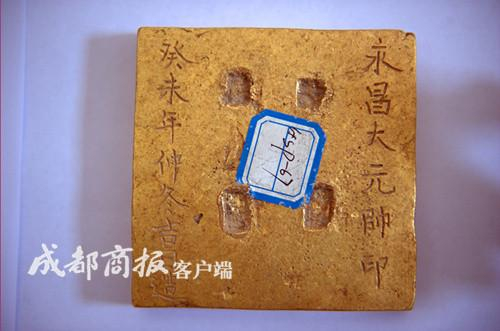 永昌大元帥印
癸未年仲冬吉日造
成都商报客户端